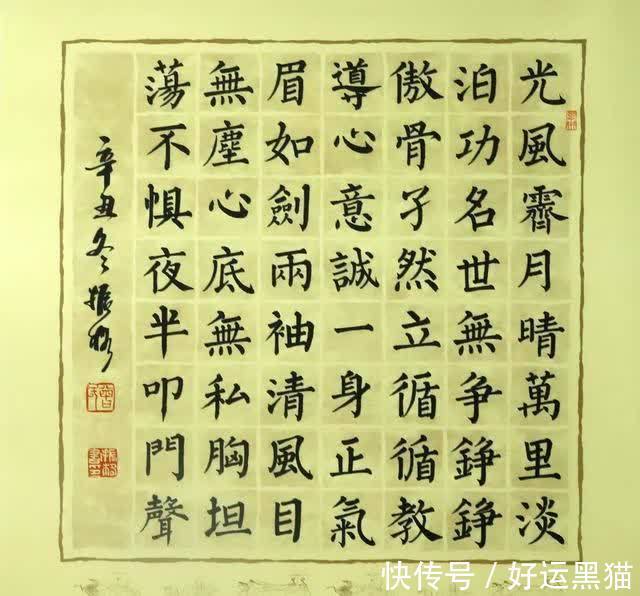 光風霽月晴萬里淡
泊功名世無争錚錚
傲骨孑然立循循教
導心意誠一身正氣
眉如劍兩袖清風目
無塵心底無私胸坦
蕩不懼夜半叩門聲
辛丑冬振
快传号/好运黑猫